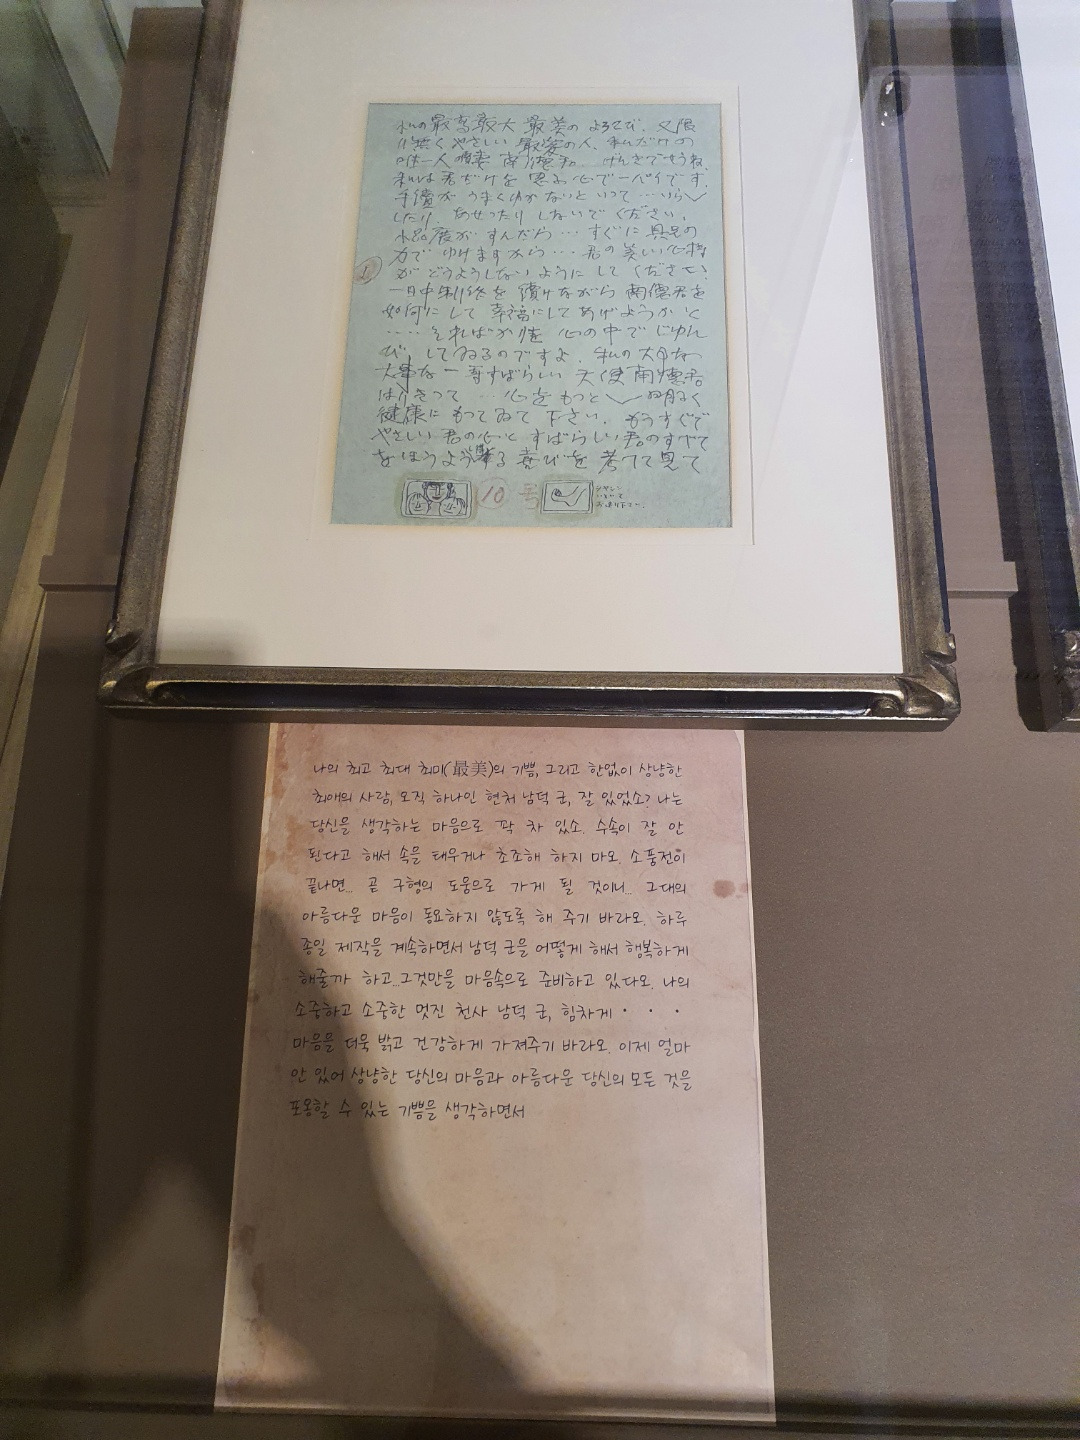 私の最高最大最美のよろこび、又限
り無くやさしい最愛の人、私だけの
唯一人の賢妻南德君 げんきでせうね
私は君だけを思ふ心で一パイです.
手續がうまくゆかないといって…いらいら
したり.あせったりしないでください.
小品展がすんだら…すぐに具兄の
力でゆけますから…君の美しい心持
がどうようしないようにしてください.
一日中制作を續けながら南德君を
如何にして幸福にしてあげようかと
……そればかり 心の中でじゆん
び してゐるのですよ.私の大事な
大事な一番すばらしい天使南德君
はりきって…心をもっともっと明るく
健康にもってゐて下さい.もうすぐで
やさしい君の心とすばらしい君のすべて
をほうようする喜びを考へて見て
1
10 号
나의 최고 최대 최미(最美)의 기쁨, 그리고 한없이 상냥한
최애의 사람, 오직 하나인 현처 남덕 군, 잘 있었소? 나는
당신을 생각하는 마음으로 꽉 차 있소. 수속이 잘 안
된다고 해서 속을 태우거나 초조해 하지 마오. 소품전이
끝나면... 곧 구형의 도움으로 가게 될 것이니... 그대의
아름다운 마음이 동요하지 않도록 해 주기 바라오. 하루
종일 제작을 계속하면서 남덕 군을 어떻게 해서 행복하게
해줄까 하고...그것만을 마음속으로 준비하고 있다오. 나의
소중하고 소중한 멋진 천사 남덕 군, 힘차게 · · ·
마음을 더욱 밝고 건강하게 가져주기 바라오. 이제 얼마
안 있어 상냥한 당신의 마음과 아름다운 당신의 모든 것을
포옹할 수 있는 기쁨을 생각하면서